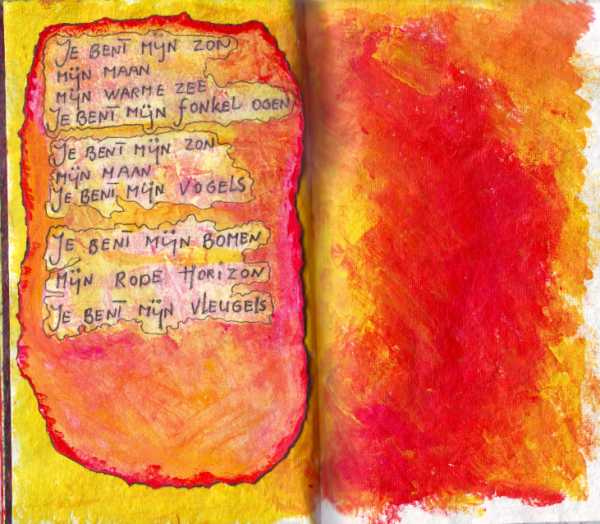 Je bent mijn zon
mijn maan
mijn warme zee
Je bent mijn fonkel ogen
Je bent mijn zon
mijn maan
Je bent mijn vogels
Je bent mijn bomen
mijn rode horizon
Je bent mijn vleugels